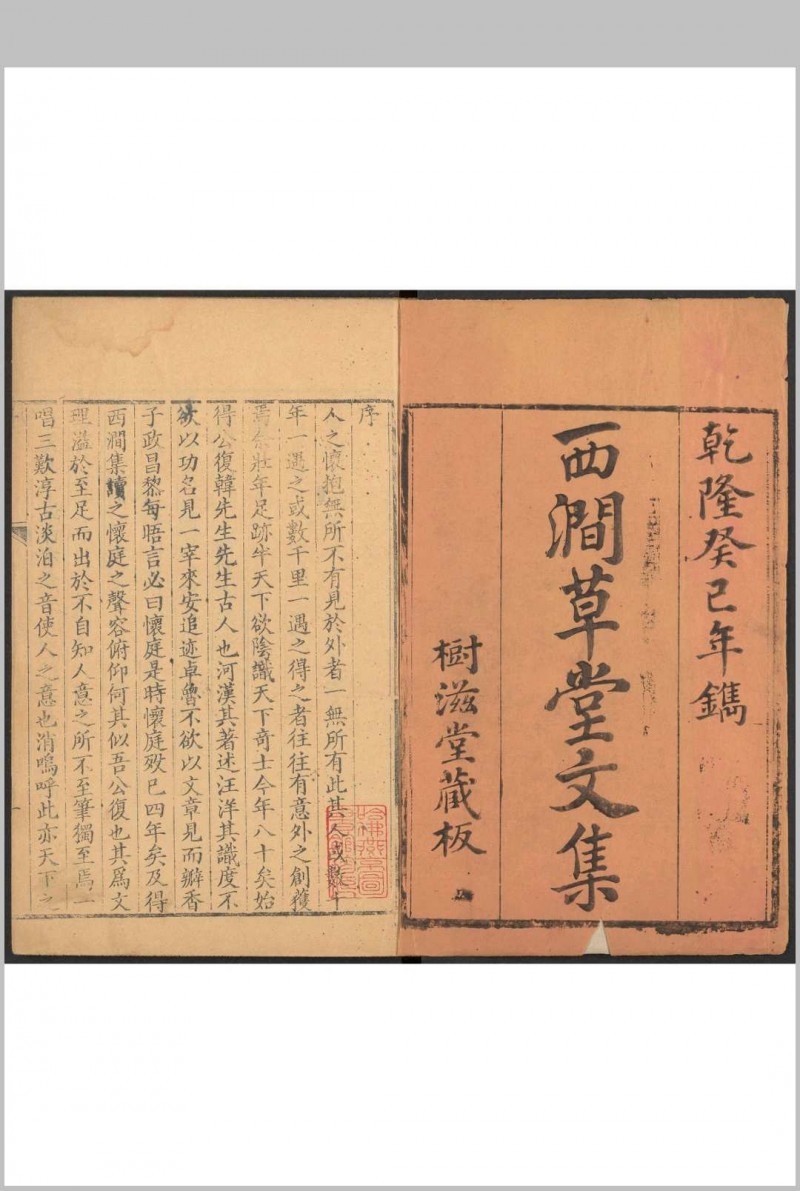 乾隆癸巳年鐫
西澗草堂文集
樹滋堂藏板
序
人之懷抱無所不有見於外者一無所有此其人或數十
年一遇之或數千里一遇之得之者往往有意外之創獲
焉余壯年足跡半天下欲陰識天下奇士今年八十矣始
得公復韓先生先生古人也河漢其著述汪洋其識度不
欲以功名見一宰來安追迹卓魯不欲以文章見而瓣香
子政昌黎每晤言必曰懷庭是時懷庭歿已四年矣及得
西澗集讀之懷庭之聲容俯仰何其似吾公復也其爲文
理溢於至足而出於不自知人意之所不至筆獨至焉一
唱三歎淳古淡泊之音使人之意也消嗚呼此亦天下之